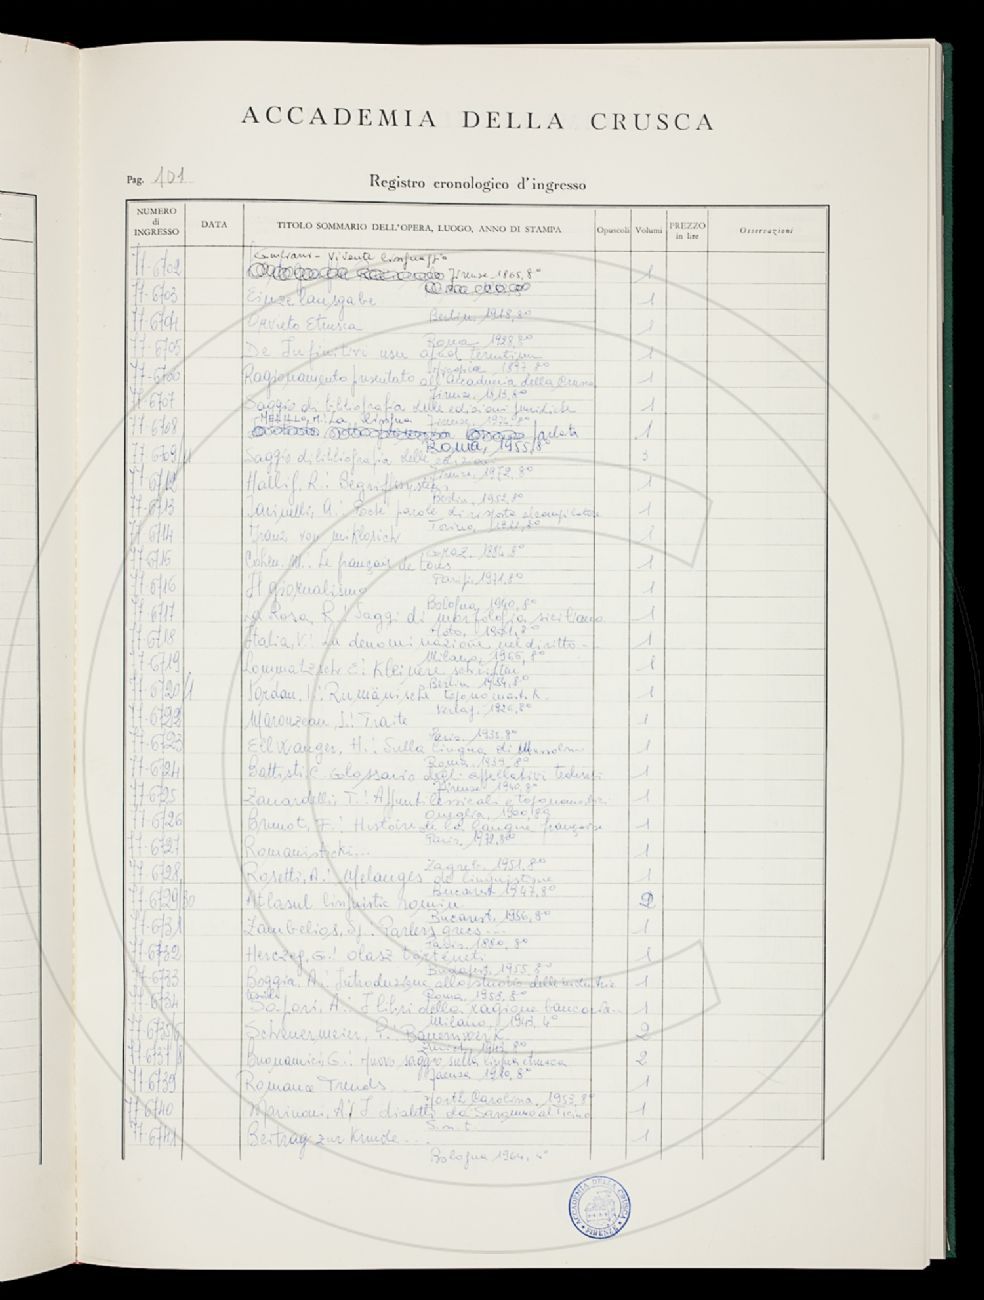 ACCADEMIA DELLA CRUSCA
Pag. 101
Registro cronologico d'ingresso
NUMERO di INGRESSO
DATA
TITOLO SOMMARIO DELL'OPERA, LUOGO, ANNO DI STAMPA
Opuscoli
Volumi
PREZZO in lire
Osservazioni
Vivente linguaggio
77-6702 Firenze 1865, 8° 1
77-6703 Einzelausgabe 1
Berlin, 1918, 8°
77-6704 Orvieto Etrusca
Roma, 1928, 8°
77-6705 De Infinitivi usu apud Terentium 1
1897, 8°
77-6706 Ragionamento presentato all'Accademia della Crusca 1
Firenze, 1813, 8°
77-6707 Saggio di bibliografia delle edizioni giuridiche 1
Firenze, 8°
77-6708 La lingua parlata 1
Roma, 1955, 8°
77-6709/11 Saggio di bibliografia delle edizioni 3
Firenze, 1972, 8°
77-6712 Hallig, R.: Begriffssystem 1
Berlin, 1952, 8°
77-6713 Farinelli, A.: Poche parole di risposta al compilatore 1
Torino, 8°
77-6714 Franz von Miklosich
Graz, 8°
77-6715 Cohen, M.: Le français de tous 1
Parigi, 1971, 8°
77-6716 Il giornalismo 1
Bologna, 1940, 8°
77-6717 La Rosa, R.: Saggi di morfologia siciliana 1
Noto, 1901, 8°
77-6718 Italia, V.: La denominazione nel diritto 1
Milano, 1966, 8°
77-6719 Lommatzsch E.: Kleinere schriften
Berlin 1954, 8°
77-6720/1 Jordan, I.: Rumänische toponomast. K. 1
1926, 8°
77-6722 Marouzeau, J.: Traité 1
Paris, 1935, 8°
77-6723 Ellwanger, H.: Sulla lingua di Mussolini 1
Roma, 1939, 8°
77-6724 Battisti C. Glossario degli appellativi tedeschi 1
Firenze, 1940, 8°
77-6725 Zanardelli, T.: Appunti lessicali e toponomastici 1
Oneglia, 1900, 8°
77-6726 Brunot, F.: Histoire de la langue française 1
Paris, 8°
77-6727 Romanistički... 1
Zagreb, 1951, 8°
77-6728 Rosetti, A.: Melanges de linguistique 1
Bucarest 1947, 8°
77-6729/30 Atlasul linguistic romin 2
Bucarest, 1956, 8°
77-6731 Zambelios, Sp.: Parlers grecs... 1
Paris, 1880, 8°
77-6732 Herczeg, G.: olasz 1
Budapest, 1955, 8°
77-6733 Boggia, A.: Introduzione allo studio delle industrie tessili 1
Roma, 1953, 8°
77-6734 Sapori, A.: I libri della ragione bancaria 1
Milano, 1943, 4°
77-6735/6 Scheuermeier, P.: Bauernwerk 2
Zürich, 1943, 8°
77-6737/8 Buonamici, G.: nuovo saggio sulla lingua etrusca 2
Faenza, 8°
77-6739 Romance Trends 1
North Carolina, 1953, 8°
77-6740 Marinoni, A. I dialetti da Saronno al Ticino 1
S.n.t.
77-6741 Beitrag zur Kunde... 1
Bologna 1964,
ACCADEMIA DELLA CRUSCA FIRENZE